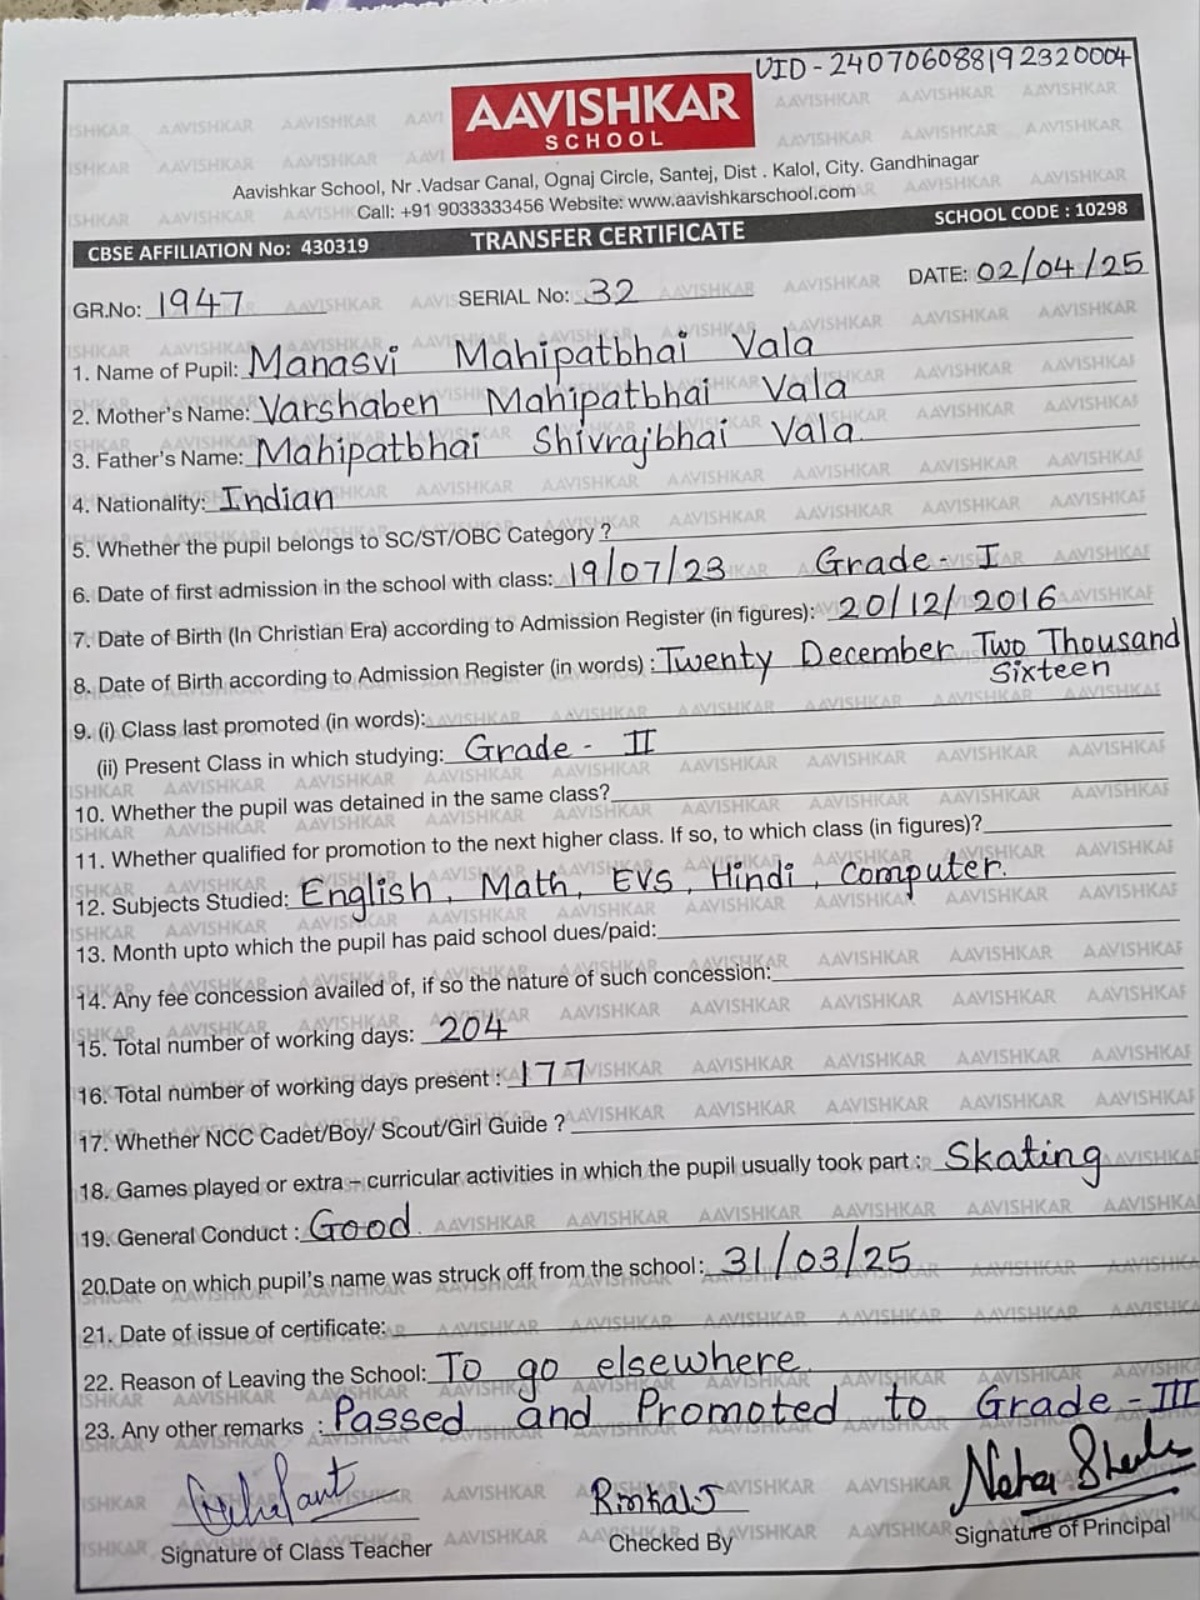 UID-240706088192320004
AAVISHKAR
SCHOOL
Aavishkar School, Nr .Vadsar Canal, Ognaj Circle, Santej, Dist . Kalol, City. Gandhinagar
Call: +91 9033333456 Website: www.aavishkarschool.com
CBSE AFFILIATION No: 430319 TRANSFER CERTIFICATE SCHOOL CODE : 10298
GR.No: 1947 SERIAL No: 32 DATE: 02/04/25
1. Name of Pupil: Manasvi Mahipatbhai Vala
2. Mother's Name: Varshaben Mahipatbhai Vala
3. Father's Name: Mahipatbhai Shivrajbhai Vala
4. Nationality: Indian
5. Whether the pupil belongs to SC/ST/OBC Category ?
6. Date of first admission in the school with class: 19/07/23 Grade - I
7. Date of Birth (In Christian Era) according to Admission Register (in figures): 20/12/2016
8. Date of Birth according to Admission Register (in words) : Twenty December Two Thousand
Sixteen
9. (i) Class last promoted (in words):
(ii) Present Class in which studying: Grade - II
10. Whether the pupil was detained in the same class?
11. Whether qualified for promotion to the next higher class. If so, to which class (in figures)?
12. Subjects Studied: English, Math, EVS, Hindi, Computer.
13. Month upto which the pupil has paid school dues/paid:
14. Any fee concession availed of, if so the nature of such concession:
15. Total number of working days: 204
16. Total number of working days present : 177
17. Whether NCC Cadet/Boy/ Scout/Girl Guide ?
18. Games played or extra – curricular activities in which the pupil usually took part : Skating
19. General Conduct : Good.
20.Date on which pupil's name was struck off from the school: 31/03/25
21. Date of issue of certificate:
22. Reason of Leaving the School: To go elsewhere.
23. Any other remarks : Passed and Promoted to Grade - III
Signature of Class Teacher Checked By Signature of Principal